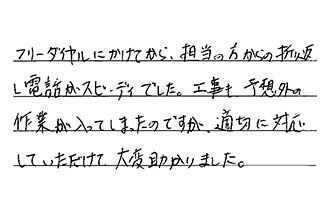 フリーダイヤルにかけてから、担当の方からの折り返
し電話がスピーディでした。工事も、予想外の
作業が入ってしまったのですが、適切に対応
していただけて大変助かりました。